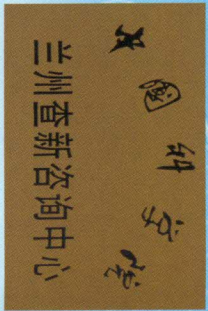 中国科学院
兰州查新咨询中心